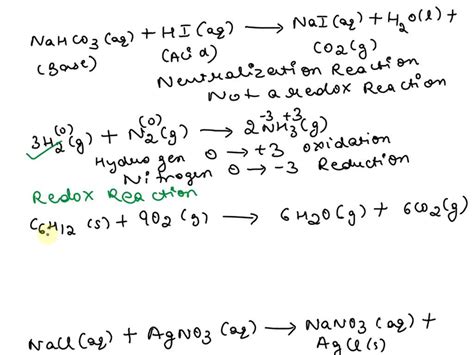 NaHCO3(aq) + HI(aq) → NaI(aq) + H2O(l) +
(Base) (Acid) CO2(g)
Neutralization Reaction
Not a redox Reaction
(0) (0) -3 +3
3H2(g) + N2(g) → 2NH3(g)
Hydrogen 0 → +3 oxidation
Nitrogen 0 → -3 Reduction
Redox Reaction
C6H12 (s) + 9O2 (g) → 6H2O(g) + 6CO2(g)
NaCl(aq) + AgNO3(aq) → NaNO3(aq) +
AgCl(s)